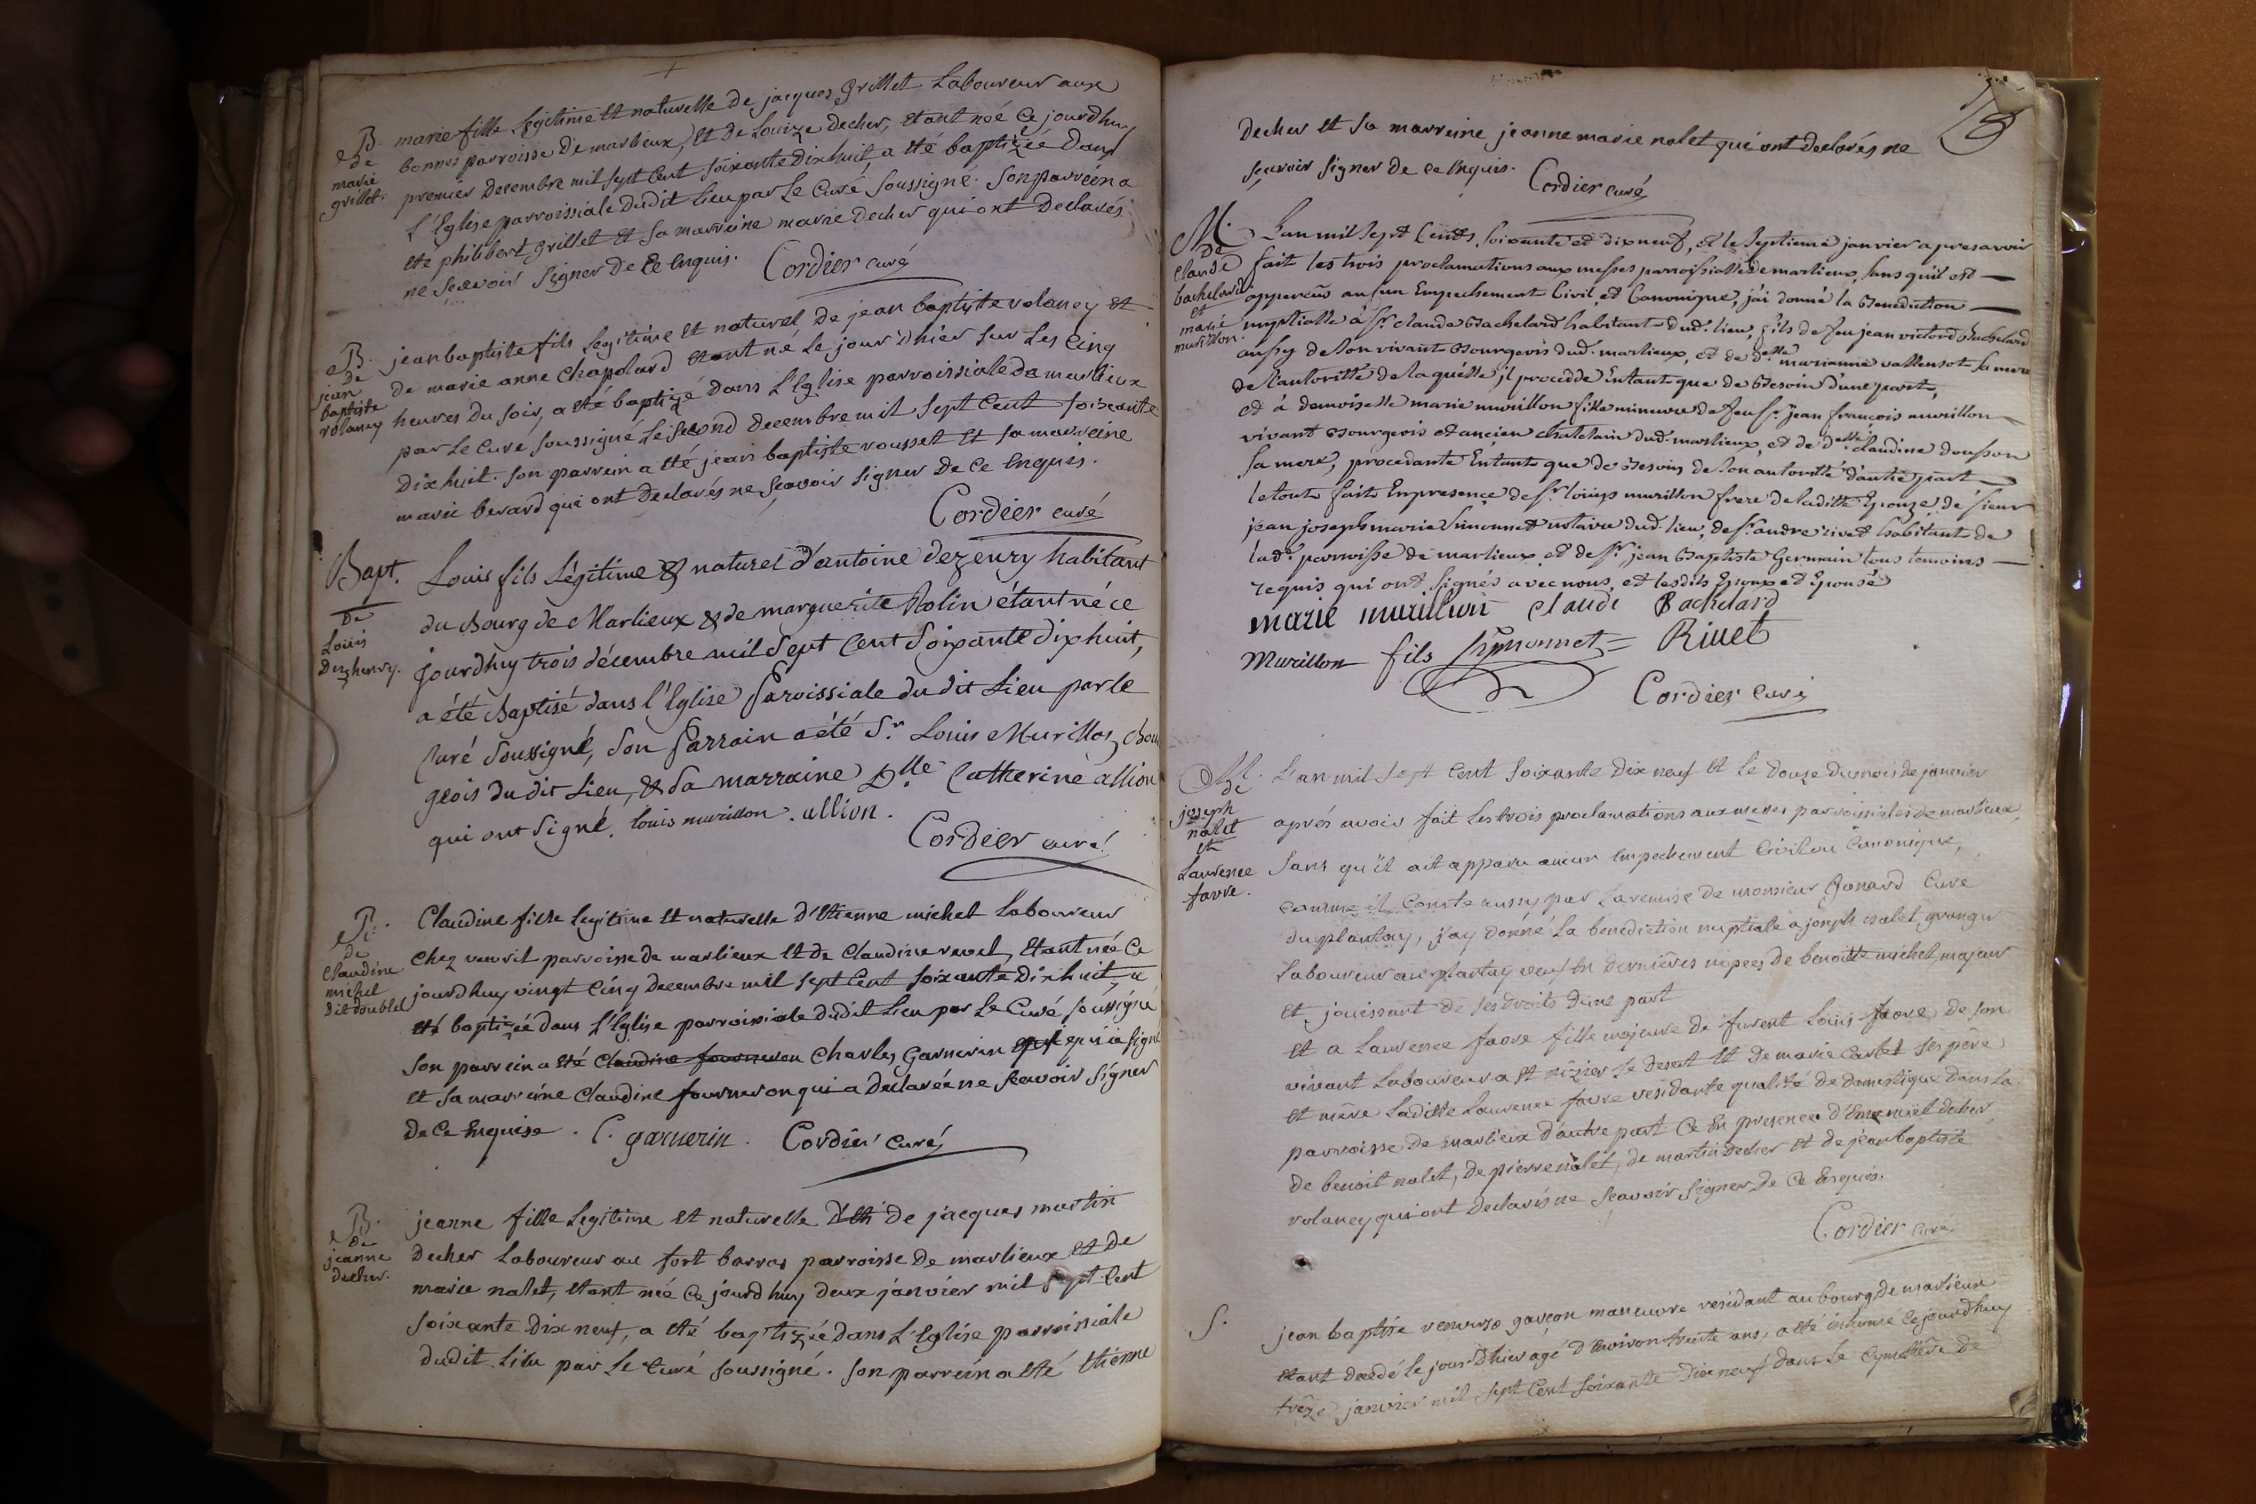 B.
de
marie
grillet.
marie fille legitime et naturelle de jacques grillet Laboureur aux
bonnes parroisse de marlieux, et de Louize decher, etant née ce jourdhuy
premier decembre mil sept cent soixante dixhuit, a été baptizée dans
L'Eglise parroissiale dudit lieu par le Curé soussigné. Son parrein a
été philibert grillet et sa marreine marie decher qui ont declarés
ne sçavoir signer de ce enquis. Cordier curé
B.
de
jean
baptiste
volancy
jean baptiste fils legitime et naturel de jean baptiste volancy et
de marie anne Chapolard etant né le jour d'hier sur les cinq
heures du soir, a été baptizé dans L'Eglise parroissiale de marlieux
par le curé soussigné le second decembre mil sept cent soixante
dixhuit. son parrein a été jean baptiste rousset et sa marreine
marie berard qui ont declarés ne sçavoir signer de ce enquis.
Cordier curé
Bapt.
de
Louis
Dezhenry.
Louis fils Légitime & naturel d'antoine dezenry habitant
du Bourg de Marlieux & de marguerite Rolin étant né ce
jourdhuy trois décembre mil Sept Cent Soixante dixhuit,
a été Baptisé dans l'Eglise Paroissiale du dit Lieu par le
Curé Soussigné, Son Parrain a été Sr. Louis Murillon, Bour
geois du dit Lieu, & Sa marraine Dlle. Catherine allion
qui ont Signé. louis murillon. allion.
Cordier curé
B.
de
Claudine
michel
dit doublet
Claudine fille legitime et naturelle d'Etienne michel Laboureur
chez vauvril parroisse de marlieux et de Claudine revel, etant née ce
jourdhuy vingt cinq decembre mil sept cent soixante dixhuit, a
eté baptizée dans L'Eglise parroissiale dudit Lieu par Le Curé soussigné
son parrein a été Claudine fourneron Charles Garnerin qui a signé
et sa marreine Claudine fourneron qui a declarée ne sçavoir signer
de ce enquise. C. garnerin. Cordier curé
B.
de
jeanne
decher.
jeanne fille legitime et naturelle de jacques martin
decher Laboureur au fort barras parroisse de marlieux et de
marie nalet, etant née ce jourdhuy deux janvier mil sept cent
soixante dix neuf, a eté baptizée dans L'Eglise parroissiale
dudit Lieu par le Curé soussigné. son parrein a été etienne
decher et sa marreine jeanne marie nalet qui ont declarés ne
sçavoir signer de ce enquis. Cordier curé
M.
de
Claude
bachelard
et
marie
murillon.
Lan mil sept Cents soixante et dix neuf, et le septieme janvier apres avoir
fait les trois proclamations aux messes parroissialles de marlieux, sans qu'il est
apperceus aucun Empechement Civil et Canonique, j'ai donné la Benediction
nuptialle à Sr. claude Bachelard habitant dud. lieu, fils de feu jean victord Bachelard
aussy de son vivant Bourgeois dud. marlieux, et de delle marianne vallensot sa mere
de l'autoritté de laquélle il procedde Entant que de Besoin d'une part,
et à demoiselle marie murillon fille mineure de feu Sr. jean françois murillon
vivant Bourgeois et ancien chatelain dud. marlieux, et de delle claudine donson
sa mere, procedante Entant que de Besoins de son autoritté d'autre part
le tout fait En presence de Sr. louis murillon frere de laditte Epouze, de sieur
jean joseph marie Simonnet notaire dud. lieu, de Sr. andre rivet habitant de
lad. parroisse de marlieux et de Sr. jean Baptiste Germain tous temoins
requis qui ont signés avec nous, et lesdits Epoux et Epouse
marie murillion Claude Bachelard
Murillon fils Simonnet Rivet
Cordier curé
M.
de
joseph
nalet
et
Laurence
favre.
L'an mil sept cent soixante dix neuf et le douze du mois de janvier
aprés avoir fait les trois proclamations aux messes parroissiales de marlieux,
sans qu'il ait apparu aucun empechement Civil ni Canonique,
comme il conste aussy par La remise de monsieur Gonard Curé
du plantay, j'ay donné la benediction nuptiale a joseph nalet granger
Laboureur au plantay veuf en dernières nopces de benoitte michel, majeur
et jouissant de ses droits d'une part
et a Laurence favre fille majeure de furent Louis favre de son
vivant Laboureur a st nizier le desert et de marie Carlet ses père
et mère Laditte Laurence favre residante qualité de domestique dans La
parroisse de marlieux d'autre part Ce En presence d'Emmanuel decher
de benoit nalet, de pierre nalet, de martin decher et de jean baptiste
volancy qui ont declarés ne sçavoir signer de ce enquis.
Cordier curé
S.
jean baptiste garçon manœuvre residant au bourg de marlieux
etant decedé le jour d'hier agé d'Environ trente ans, a été inhumé ce jourdhuy
treize janvier mil sept cent soixante dix neuf dans le Cymetière de